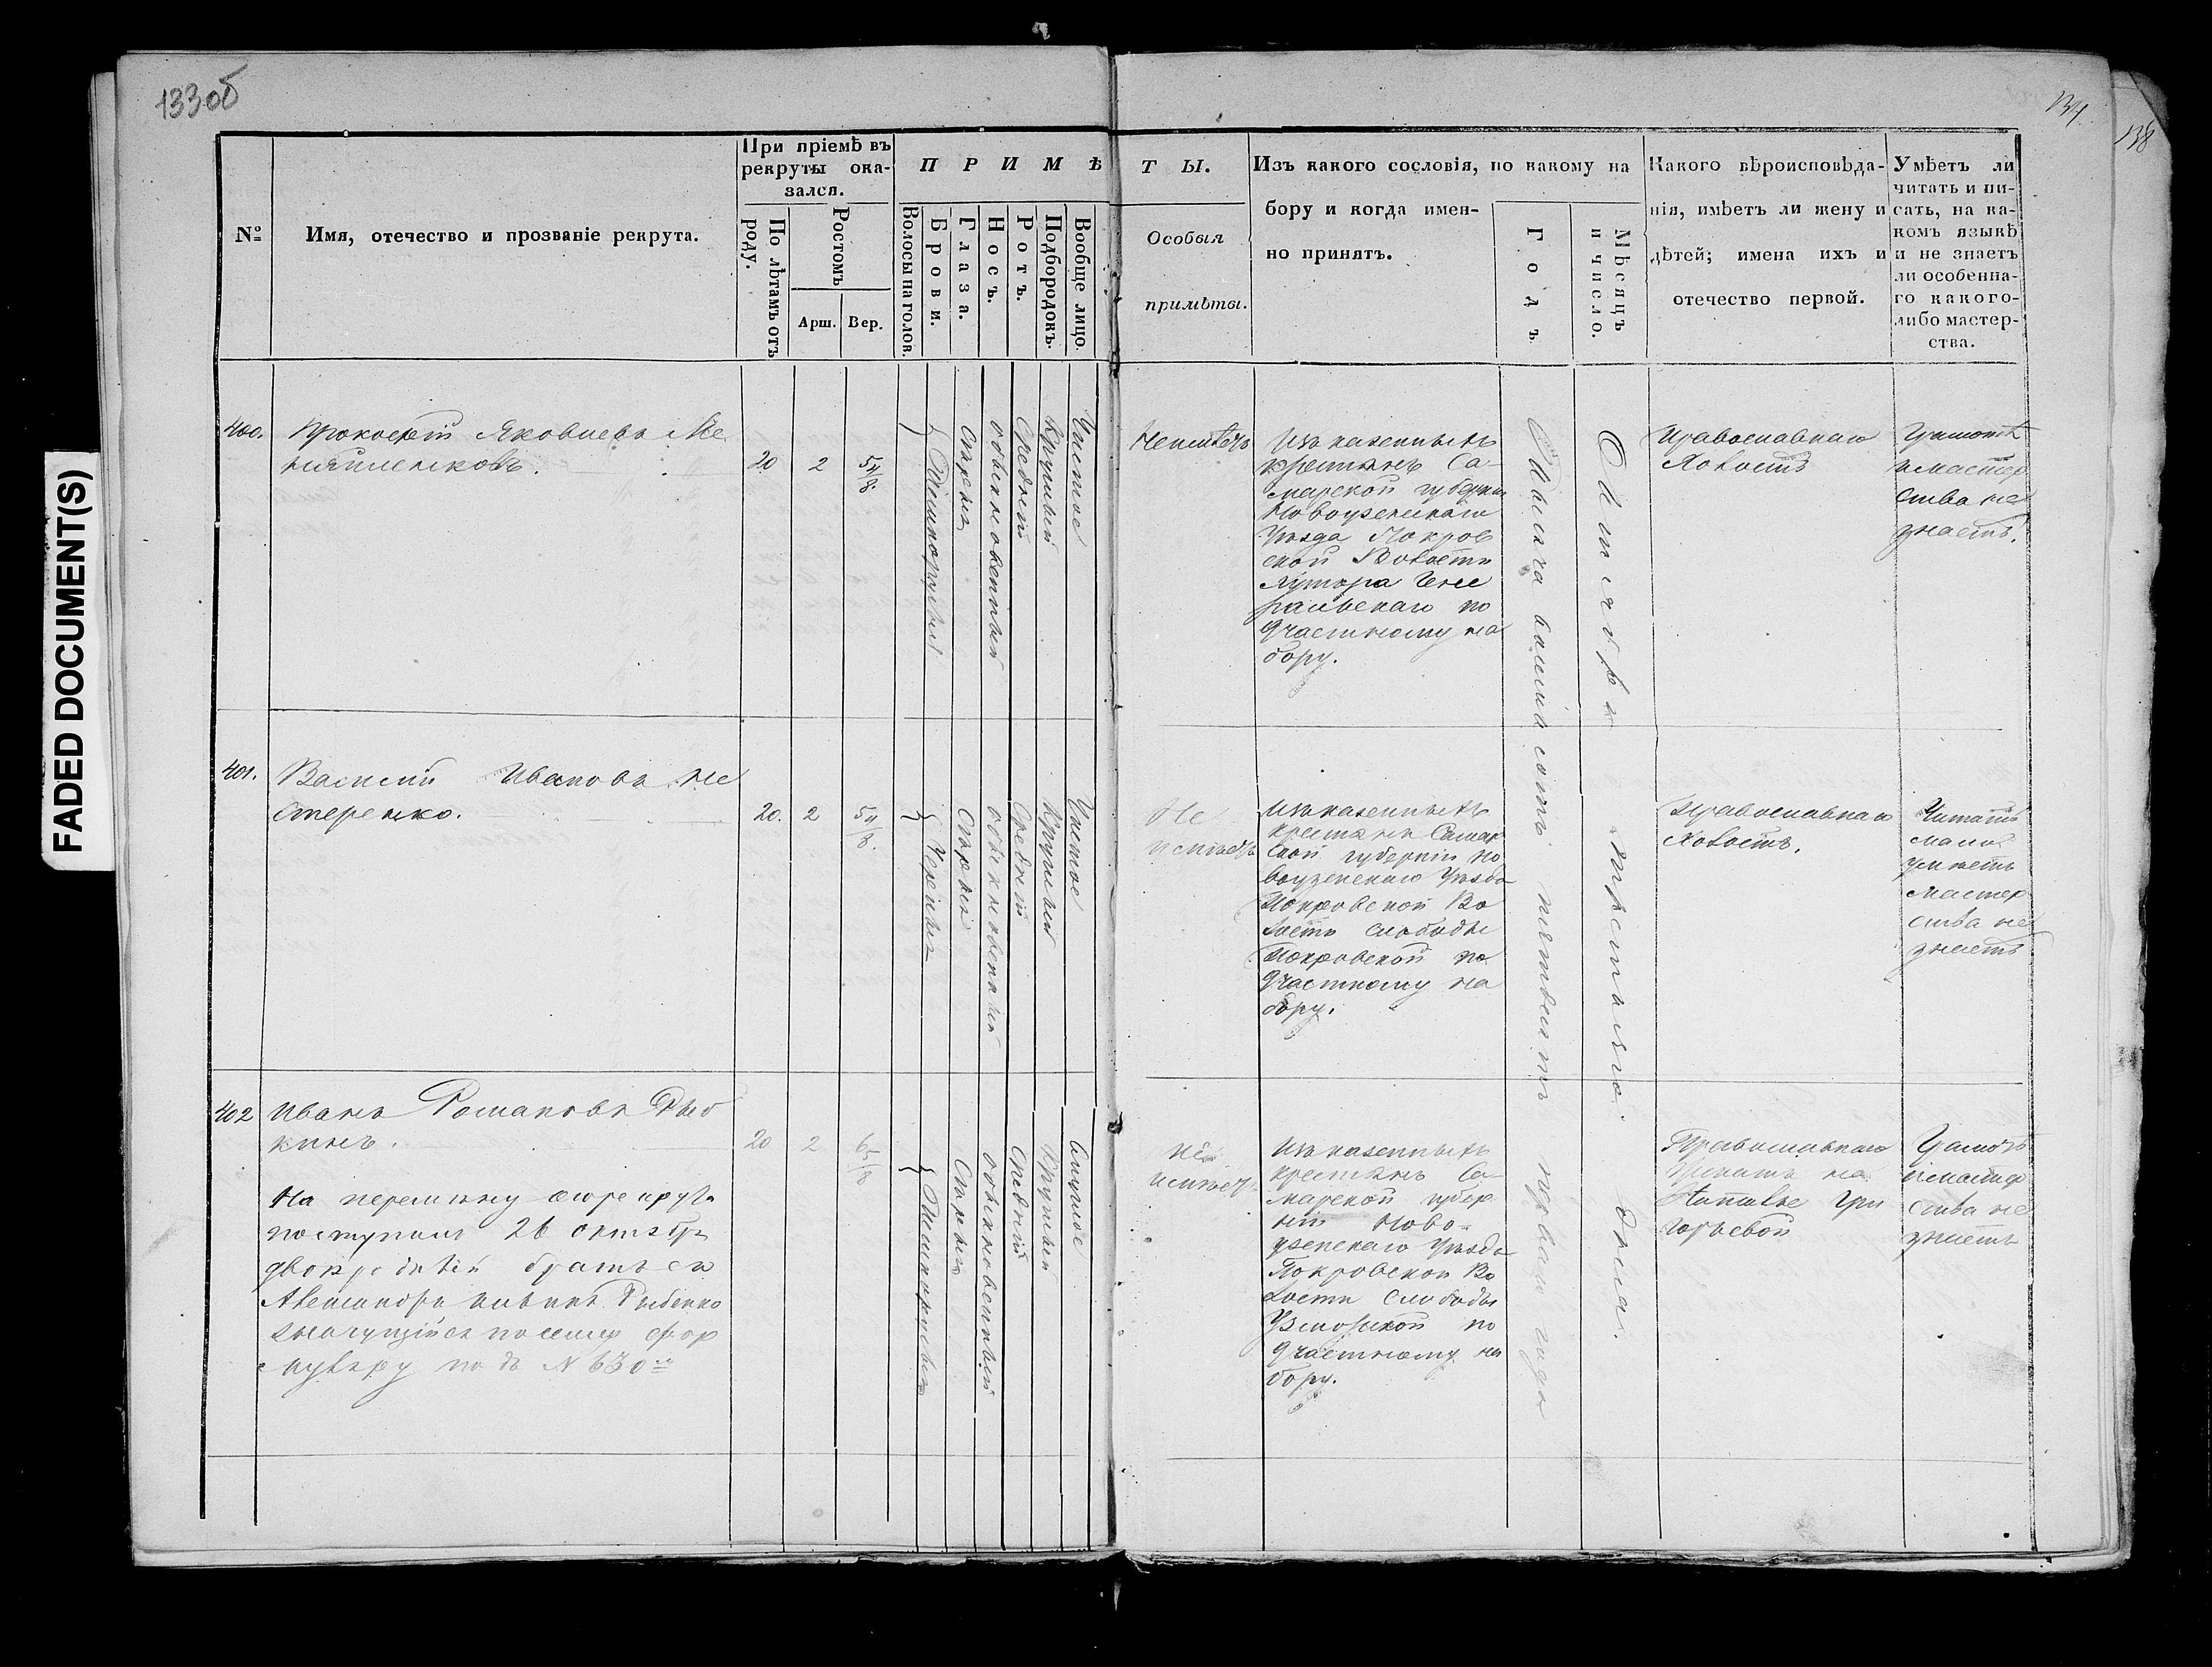 133об
134.
138
FADED DOCUMENT(S)
№
Имя, отечество и прозваніе рекрута.
При пріемѣ въ
рекруты ока-
зался.
По лѣтамъ отъ
роду.
Ростомъ
Арш.
Вер.
ПРИМѢ
ТЫ.
Волосы на голов.
Брови.
Глаза.
Носъ.
Ротъ.
Подбородокъ.
Вообще лицо.
Особыя
примѣты.
Изъ какого сословія, по какому на
бору и когда имен-
но принятъ.
Годъ.
Мѣсяцъ
и число.
Какого вѣроисповѣда-
нія, имѣетъ ли жену и
дѣтей; имена ихъ и
отечество первой.
Умѣетъ ли
читать и пи-
сать, на ка-
комъ языкѣ
и не знаетъ
ли особенна-
го какого-
либо мастер-
ства.
400.
Прокофій Яковлевъ Ме
20
2
5 4/8.
Темнорусыя
Сѣрыя
обыкновенный
Средній
Круглый
Чистое
Неимѣетъ
Изъ казенныхъ
крестьянъ Са-
марской губерніи
Новоузенскаго
Уѣзда Покров
ской Волости
Хутора Гене
ральскаго по
Участному на
бору.
Тысяча восемьсотъ пятьдесятъ перваго года
Октября третьяго дня.
Православнаго
Холостъ
Грамотѣ
и мастер
ства не
знаетъ.
401.
Василій Ивановъ Не
стеренко.
20.
2
5 4/8.
Черныя
Сѣрыя
обыкновенный
Средній
Круглый
Чистое
Не
имѣетъ
Изъ казенныхъ
крестьянъ Самар
ской губерніи Но
воузенскаго Уѣзда
Покровской Во
лости слободы
Покровской по
Участному на
бору.
Православнаго
Холостъ.
Читать
мало
умѣетъ
мастер
ства не
знаетъ
402
Иванъ Романовъ Рыб
кинъ.
20
2
На перемѣну сего рекрута
поступилъ 26 октября
двоюродный братъ его
Александръ Рыбенко
значущійся по сему фор
муляру подъ N 630
Темнорусыя
Сѣрыя
обыкновенный
Средній
Круглый
Не
имѣетъ
Изъ казенныхъ
крестьянъ Са-
марской губер
ніи Ново-
узенскаго Уѣзда
Покровской Во
лости Слободы
Узморской по
Участному на
бору.
Православнаго
Женатъ на
Наталье Гри
горьевой
Грамотѣ
и мастер
ства не
знаетъ